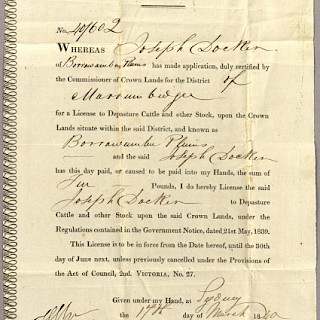 No. 40/602
WHEREAS Joseph Docker
of Borrowamba Plains has made application, duly certified by
the Commissioner of Crown Lands for the District of
Murrumbidgee
for a License to Depasture Cattle and other Stock, upon the Crown
Lands situate within the said District, and known as
Borrowamba Plains
and the said Joseph Docker
has this day paid, or caused to be paid into my Hands, the sum of
Ten Pounds, I do hereby License the said
Joseph Docker to Depasture
Cattle and other Stock upon the said Crown Lands, under the
Regulations contained in the Government Notice, dated 21st May, 1839.
This License is to be in force from the Date hereof, until the 30th
of June next, unless previously cancelled under the Provisions of
the Act of Council, 2nd. VICTORIA, No. 27.
Given under my Hand, at Sydney
the 17th day of March 1840